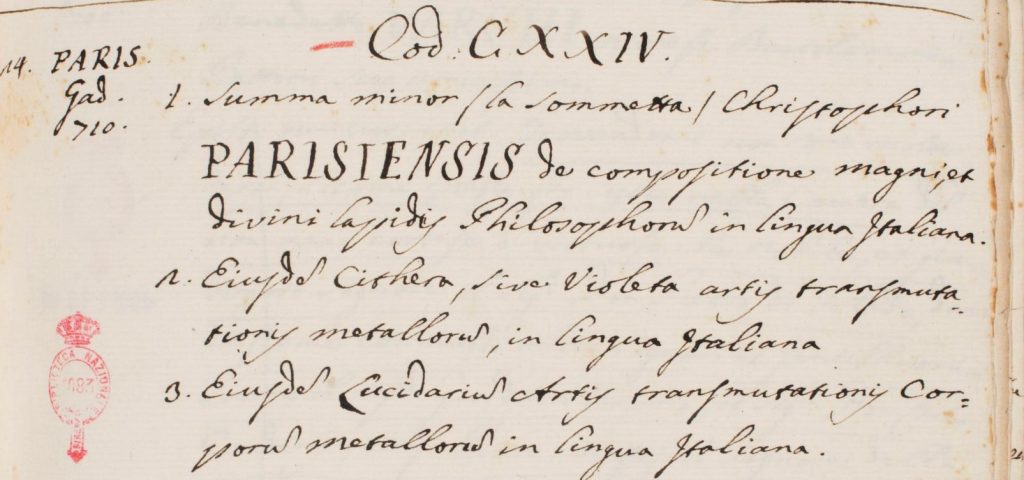 Cod. C.XXIV.
14. PARIS.
Gad.
710.
1. Summa minor /la sommetta/ Christophori
PARISIENSIS de compositione magni, et
divini lapidis Philosophorũ in lingua Italiana.
2. Eiusdẽ Cithera, sive Violeta artis transmuta=
tionis metallorũ, in lingua Italiana
3. Eiusdẽ Lucidariũ Artis transmutationis Cor=
porũ metallorũ in lingua Italiana.